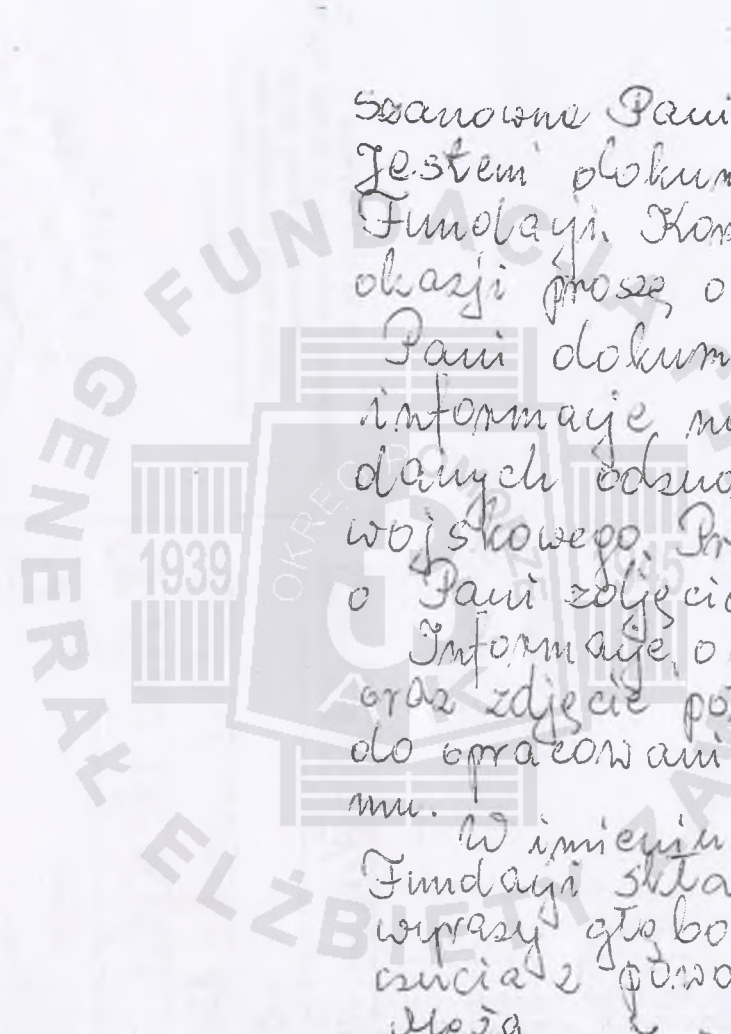 Szanowna Pani
Jestem dokum
Fundacji. Kor
okazji proszę o
Pani dokum
informację na
danych odzna
wojskowego. Pr
o Pani zdjęcie
Informacje o
oraz zdjęcie po
do opracowani
mu.
W imieniu
Fundacji skła
wyrazy głębo
czucia z powo
Męża
FUNDACJA
GENERAŁ ELŻBIETY ZA
OKRĘG POMORZE
1939
1945
AK